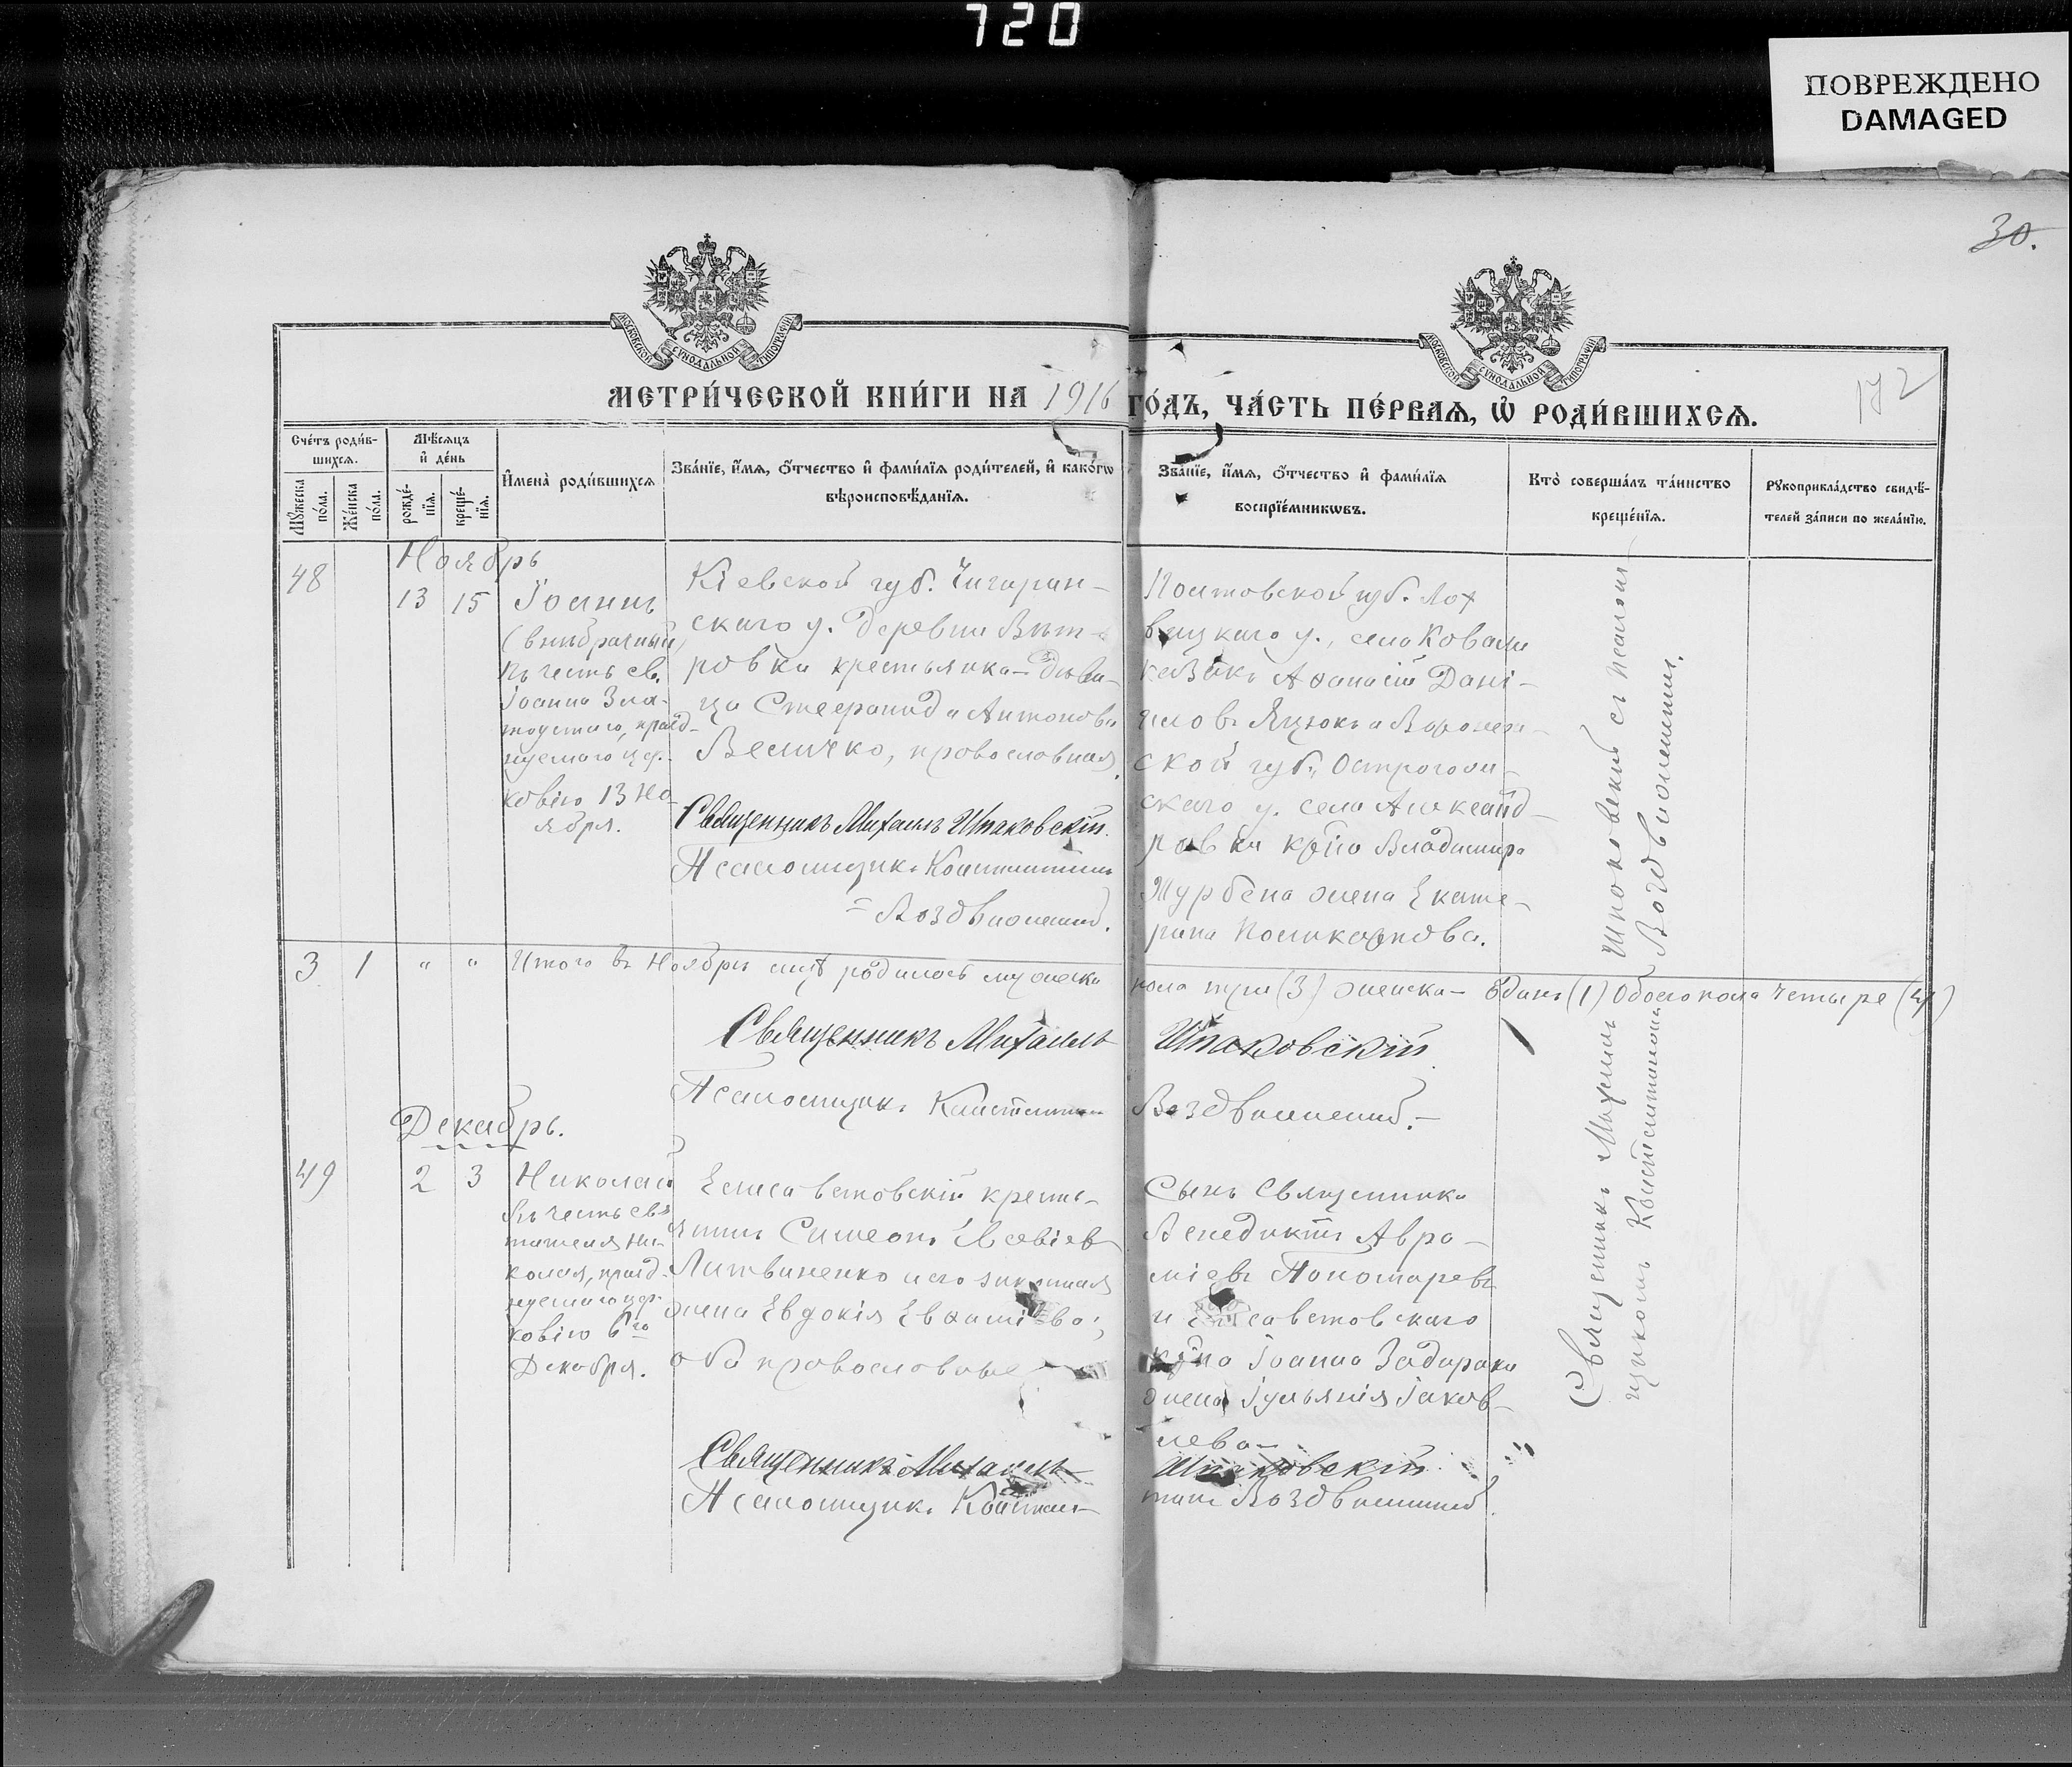 720
ПОВРЕЖДЕНО
DAMAGED
30.
МОСКОВСКОЙ СѴНОДАЛЬНОЙ ТИПОГРАФІИ
МОСКОВСКОЙ СѴНОДАЛЬНОЙ ТИПОГРАФІИ
МЕТРИ́ЧЕСКОЙ КНИ́ГИ НА 1916 ГО́ДЪ, ЧА́СТЬ ПЕ́РВАЯ, Ѡ҆ РОДИ́ВШИХСЯ.
172
Сче́тъ роди́в-
шихся.
Мѣ́сяцъ
и҆ де́нь
Мꙋ́жеска по́ла.
Же́нска по́ла.
рожде́-
нїя.
креще́-
нїя.
И҆мена̀ роди́вшихся
Зва́нїе, и҆́мя, о҆́тчество и҆ фами́лїя роди́телей, и҆ како́гѡ
вѣроисповѣ́данїя.
Зва́нїе, и҆́мя, о҆́тчество и҆ фами́лїя
воспрїе́мникѡвъ.
Кто̀ соверша́лъ та́инство
креще́нїя.
Рꙋкоприкла́дство свидѣ́-
телей за́писи по жела́нїю.
Ноябрь
48
13 15
Іоаннъ
(внѣбрачный)
въ честь св.
Іоанна Зла-
тоустаго, празд-
нуемаго цер-
ковію 13 Но-
ября.
Кіевской губ. Чигирин-
скаго у. деревни Вѣт-
ровки крестьянка-дѣви-
ца Стефанида Антонова
Величко, православная.
Священникъ Михаилъ Шпаковскій.
Псаломщикъ Константинъ
Воздвиженскій.
Полтовской губ. Лох
вицкаго у., села Ковали
казакъ Аѳанасій Дані-
иловъ Яцюкъ и Воронеж-
ской губ., Острогож-
скаго у. села Александ-
ровки кр-на Владимира
жена Екате-
рина Поликарпова.
3 1 " " Итого въ Ноябрѣ м-цѣ родилось мужеска пола три (3) женска - одинъ (1) Обоего пола четыре (4)
Священникъ Михаилъ Шпаковскій
Псаломщикъ Константинъ Воздвиженскій.-
Декабрь.
49
2 3
Николай
въ честь свя
тителя Ни-
колая, празд-
нуемаго цер-
ковію 6го
Декабря.
Елисаветовскій кресть-
янинъ Симеонъ Евсевіевъ
Литвиненко и его законная
жена Евдокія Евѳиміева;
оба православные
Священникъ Михаилъ Шпаковскій
Псаломщикъ Констан-
тинъ Воздвиженскій
Сынъ Священника
Венедиктъ Авра-
міевъ Пономаревъ
и Елисаветовскаго
кр-на Іоанна Задираки
жена Іульянія Іаков-
лева-
Священникъ Михаилъ Шпаковскій съ Псалом
щикомъ Константиномъ Воздвиженскимъ.